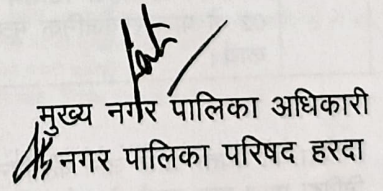 मुख्य नगर पालिका अधिकारी
नगर पालिका परिषद हरदा